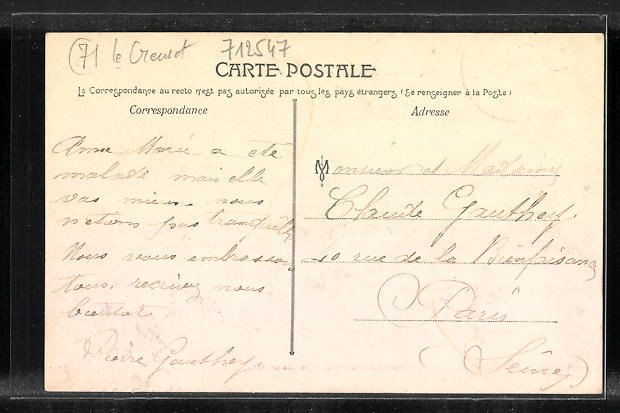 71 le Creusot 712547
CARTE POSTALE
La Correspondance au recto n'est pas autorisée par tous les pays étrangers (Se renseigner à la Poste)
Correspondance
Adresse
Anne Marie a été
malade mais elle
vas mieux nous
n'etions pas tranquille
Nous vous embrassons
tous, recrivez nous
bientot
Pierre Gauthey
Monsieur et Madame
Claude Gauthey
10 rue de la Bienfaisance
Paris
(Seine)